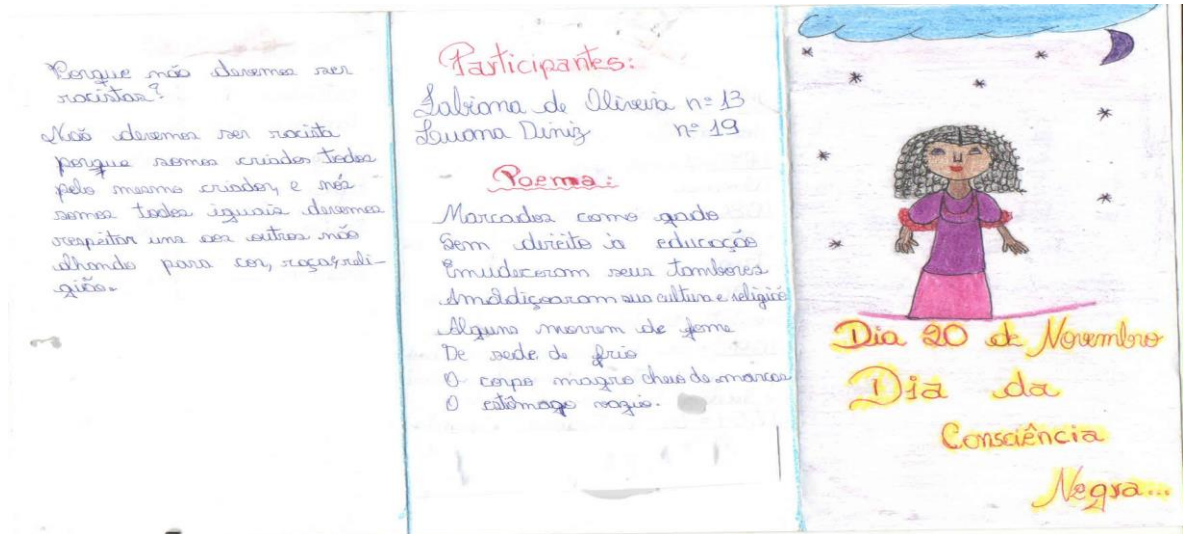 Porque não devemos ser
racistas?
Não devemos ser racista
porque somos criados todos
pelo mesmo criador, e nós
somos todos iguais devemos
respeitar uns aos outros não
olhando para cor, raça, reli-
gião.
Participantes:
Fabiana de Oliveira nº 13
Luana Diniz nº 19
Poema:
Marcados como gado
Sem direito à educação
Emudeceram seus tambores
Amaldiçoaram sua cultura e religião
Alguns morrem de fome
De sede de frio
O corpo magro cheio de marcas
O estômago vazio.
Dia 20 de Novembro
Dia da
Consciência
Negra...